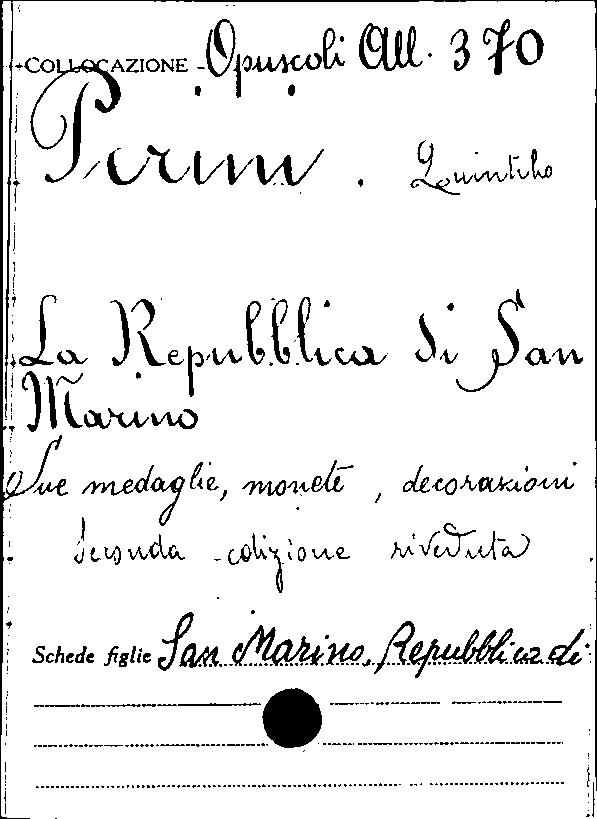 COLLOCAZIONE Opuscoli All. 370
Perini. Quintilio
La Repubblica di San
Marino
Sue medaglie, monete, decorazioni
Seconda edizione riveduta
Schede figlie San Marino, Repubblica di